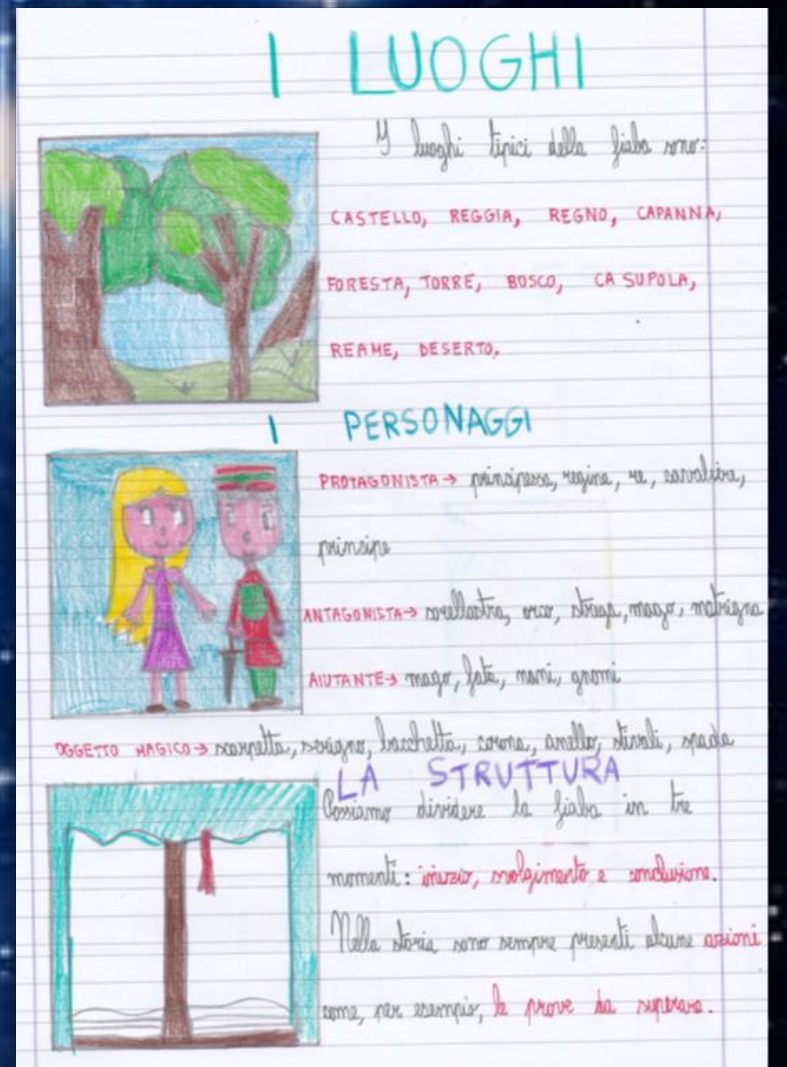 I LUOGHI
I luoghi tipici della fiaba sono:
CASTELLO, REGGIA, REGNO, CAPANNA,
FORESTA, TORRE, BOSCO, CASUPOLA,
REAME, DESERTO.
I PERSONAGGI
PROTAGONISTA → principessa, regina, re, cavaliere,
principe
ANTAGONISTA → sorellastra, orco, strega, mago, matrigna
AIUTANTE → mago, fata, nani, gnomi
OGGETTO MAGICO → scarpetta, scrigno, bacchetta, corona, anello, stivali, spada
LA STRUTTURA
Possiamo dividere la fiaba in tre
momenti: inizio, svolgimento e conclusione.
Nella storia sono sempre presenti alcune azioni
come, per esempio, le prove da superare.